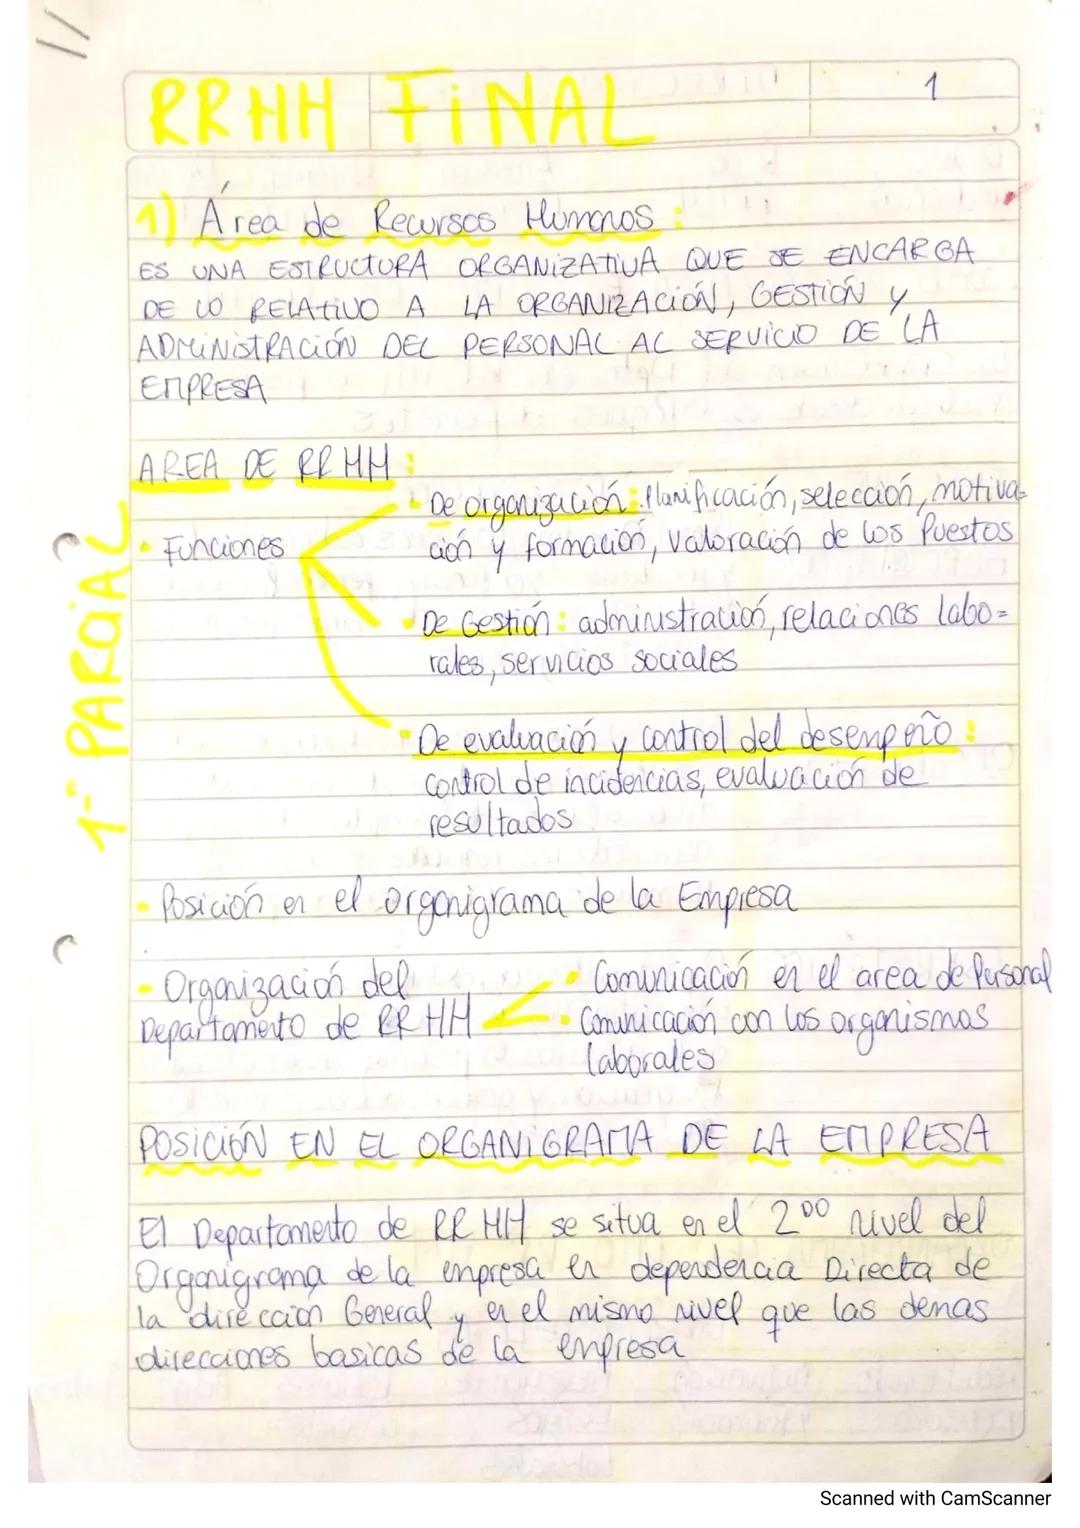 RRHH FiNAL
1
1) Área de Recursos Humanos:
ES UNA ESTRUCTURA ORGANiZATIVA QUE SE ENCARGA
DE LO RELATiVO A LA ORGANIZACiÓN, GESTIÓN y
ADMiNiSTRACiÓN DEL PERSONAL AL SERViCiO DE LA
EMPRESA
AREA DE RRHH:
• Funciones
• De organización: Planificación, selección, motiva-
ción y formación, valoración de los Puestos
• De Gestión: administración, relaciones labo-
rales, servicios sociales
• De evaluación y control del desempeño:
control de incidencias, evaluación de
resultados
1er PARCiAL
• Posición en el organigrama de la Empresa
• Organización del
Departamento de RRHH
• Comunicación en el area de Personal
• Comunicación con los organismos
laborales
POSICIÓN EN EL ORGANiGRAMA DE LA EMPRESA
El Departamento de RRHH se situa en el 2do nivel del
Organigrama de la empresa en dependencia Directa de
la dirección General y en el mismo nivel que las demas
direcciones basicas de la empresa
Scanned with CamScanner